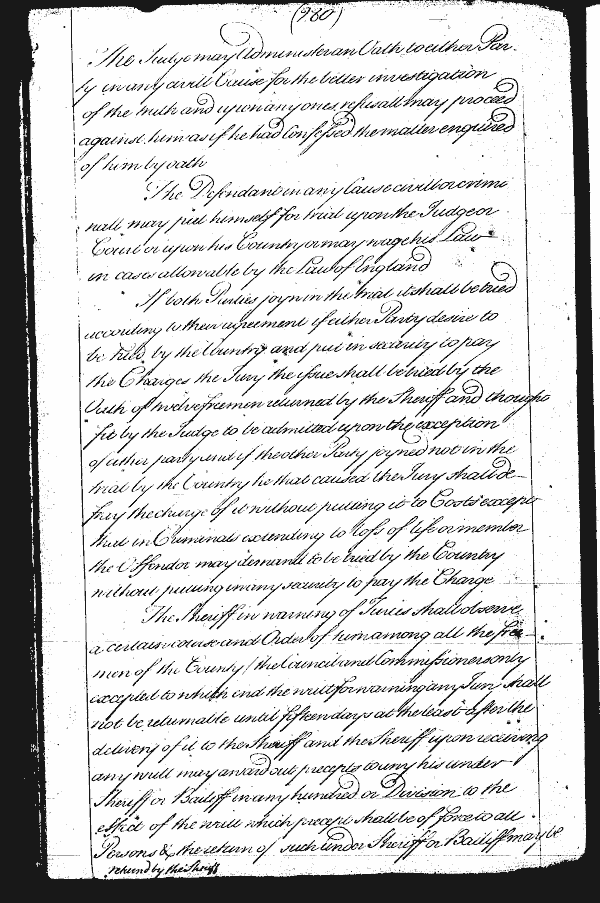 (280)
The Judge may Administer an Oath to either Par-
ty in any civill Cause for the better investigation
of the truth and upon any ones refusall may proceed
against him as if he had Confessed the matter enquired
of him by oath
The Defendant in any Cause civill or crimi
nall may putt himself for triall upon the Judge or
Court or upon his Country or may wage his Law
in cases allowable by the Law of England
If both Parties joyn in the triall it shall be tried
according to their agreement if either Party desire to
be tried by the Country and put in security to pay
the Charges the Jury the issue shall be tried by the
Oath of twelve freemen returned by the Sheriff and thought
fit by the Judge to be admitted upon the exception
of either party and if the other Party joyned not in the
trial by the Country he that caused the Jury shall de-
fray the charge of it without putting it to Costs except
that in Criminals extending to loss of life or member
the Offendor may demand to be tried by the Country
without putting in any security to pay the Charge
The Sheriff in warning of Juries shall observe
a certain course and Order of him among all the free-
men of the County (the Councill and Commissioners only
excepted to which end the writt for warning any Jury shall
not be returnable until fifteen days at the least after the
delivery of it to the Sheriff and the Sheriff upon receiving
any writt may award out precepts to any his under
Sheriff or Bailiff in any hundred or Division to the
effect of the writt which precept shall be of force to all
Persons & the return of such under Sheriff or Bailiff may be
returnd by the Sheriff